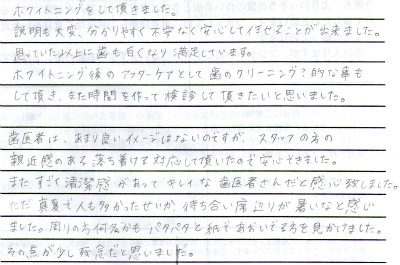 ホワイトニングをして頂きました。
説明も大変、分かりやすく不安なく安心してイませることが出来ました。
思っていた以上に歯も白くなり満足しています。
ホワイトニング後のアフターケアとして歯のクリーニング?的な事も
して頂き、また時間を作って検診して頂きたいと思いました。
歯医者は、あまり良いイメージはないのですが、スタッフの方の
親近感のある落ち着ける対応して頂いたので安心できました。
またすごく清潔感があってキレイな歯医者さんだと感心致しました。
ただ真夏で人も多かったせいか、待ち合い席辺りが暑いなと感じ
ました。周りの方何名かもパタパタと紙であおいでる方を見かけました。
その点が少し残念だと思いました。